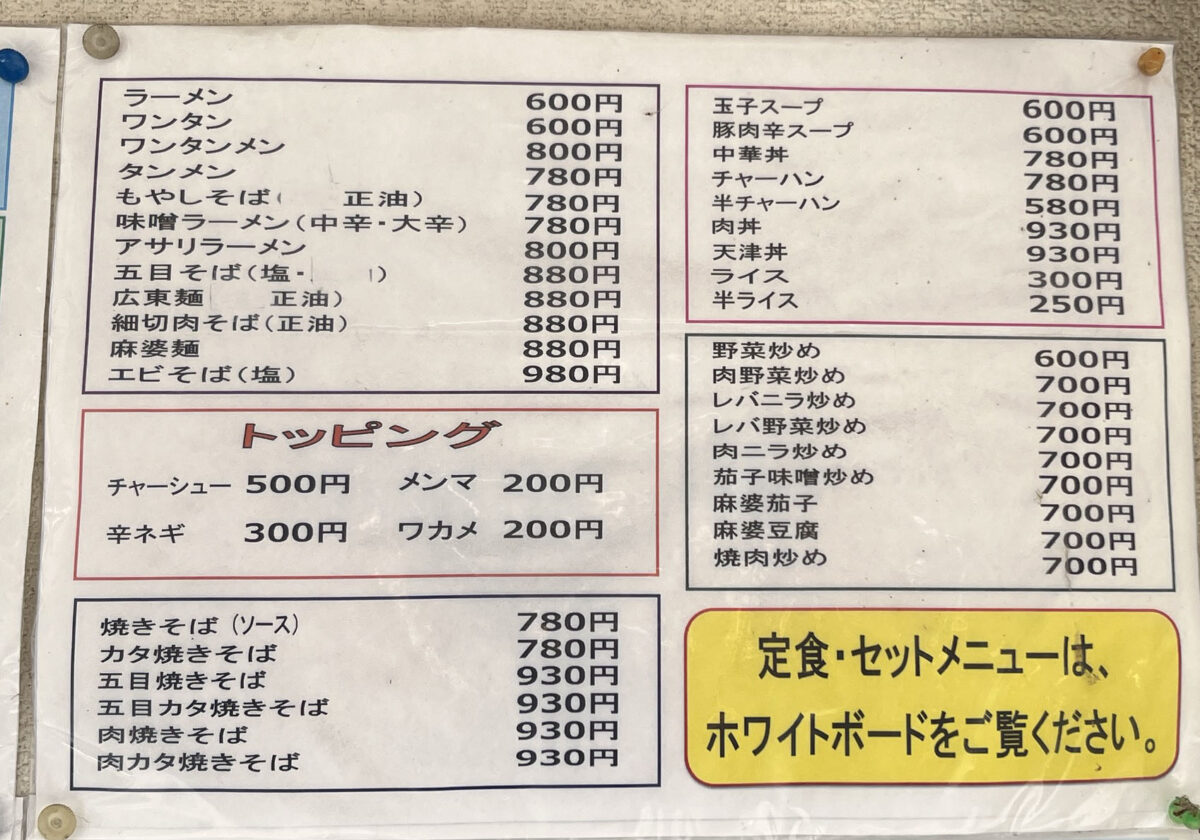 ラーメン 600円
ワンタン 600円
ワンタンメン 800円
タンメン 780円
もやしそば( 正油) 780円
味噌ラーメン(中辛・大辛) 780円
アサリラーメン 800円
五目そば(塩・ ) 880円
広東麺 正油) 880円
細切肉そば(正油) 880円
麻婆麺 880円
エビそば(塩) 980円
トッピング
チャーシュー 500円 メンマ 200円
辛ネギ 300円 ワカメ 200円
焼きそば(ソース) 780円
カタ焼きそば 780円
五目焼きそば 930円
五目カタ焼きそば 930円
肉焼きそば 930円
肉カタ焼きそば 930円
玉子スープ 600円
豚肉辛スープ 600円
中華丼 780円
チャーハン 780円
半チャーハン 580円
肉丼 930円
天津丼 930円
ライス 300円
半ライス 250円
野菜炒め 600円
肉野菜炒め 700円
レバニラ炒め 700円
レバ野菜炒め 700円
肉ニラ炒め 700円
茄子味噌炒め 700円
麻婆茄子 700円
麻婆豆腐 700円
焼肉炒め 700円
定食・セットメニューは、
ホワイトボードをご覧ください。